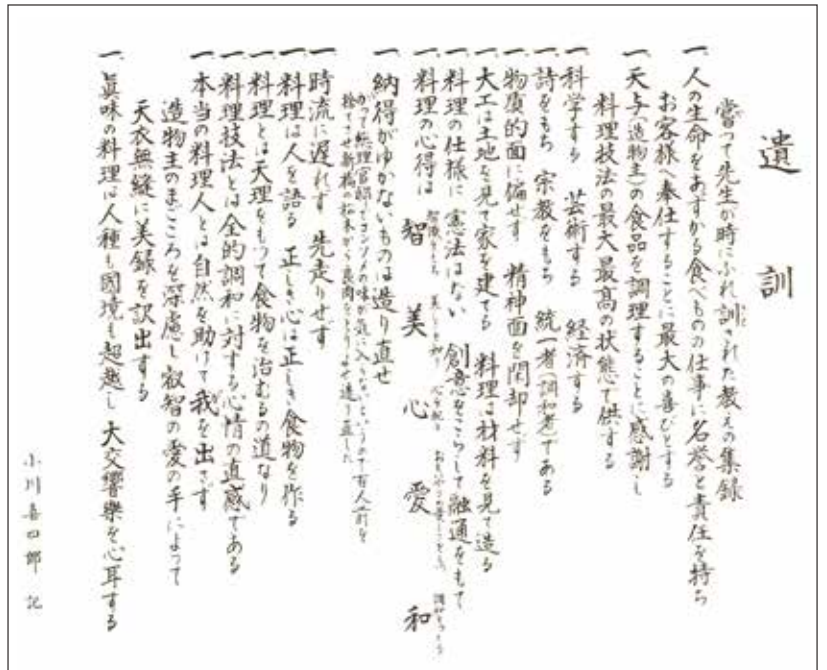 遺訓
嘗つて先生が時にふれ訓された教えの集録
一、人の生命をあずかる食べものの仕事に名誉と責任を持ち
お客様へ奉仕することに最大の喜びとする
一、天与(造物主)の食品を調理することに感謝し
料理技法の最大最高の状態で供する
一、科学する 芸術する 経済する
一、詩をもち 宗教をもち 統一者(調和者)である
一、物質的面に偏せず 精神面を閑却せず
一、大工は土地を見て家を建てる 料理は材料を見て造る
一、料理の仕様に憲法はない 創意をこらして融通をもて
一、料理の心得は 智 美 心 愛 和
一、納得がゆかないものは造り直せ
一、時流に遅れず 先走りせず
一、料理は人を語る 正しき心は正しき食物を作る
一、料理とは天理をもつて食物を治むるの道なり
一、料理技法とは全的調和に対する心情の直感である
一、本当の料理人とは自然を助けて我を出さず
造物主のまごころを深慮し叡智の愛の手によつて
天衣無縫に美録を訳出する
一、眞味の料理は人種も國境も超越し大交響樂を心耳する
小川喜四郎 記